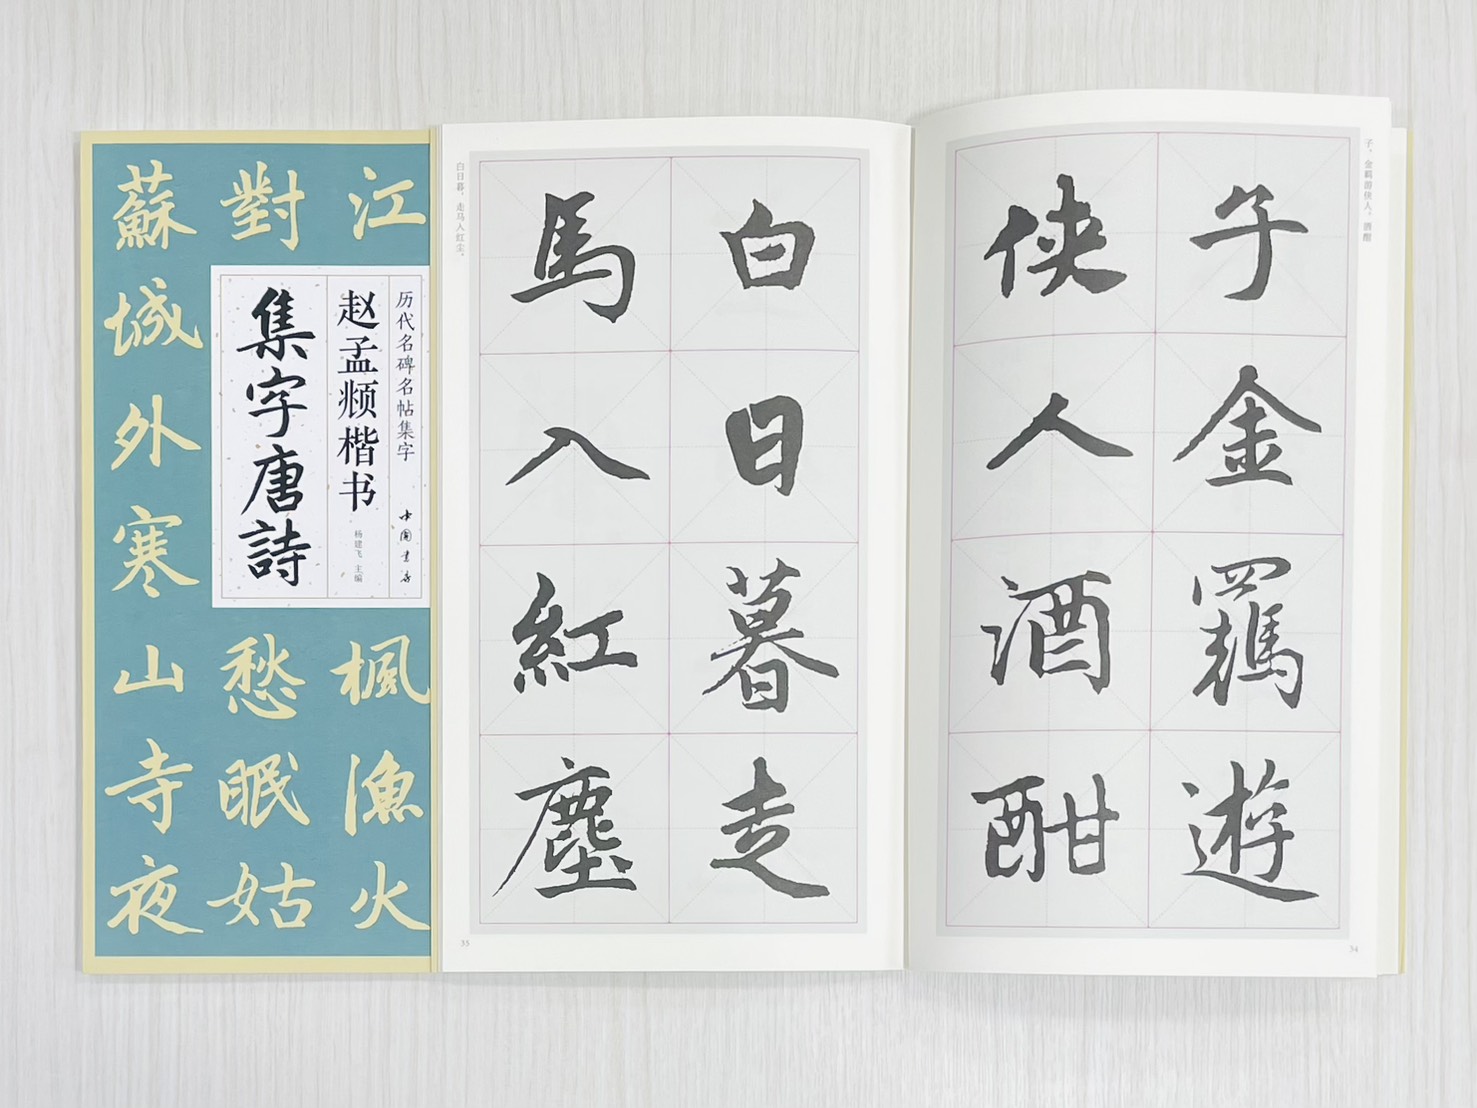 江
枫漁火
對
愁眠姑
蘇城外寒山寺夜
历代名碑名帖集字
中国书店
赵孟頫楷书
杨建飞 主编
集字唐詩
子。金羁游侠人。酒酣
子金羈遊
俠人酒酣
34
白日暮走
馬入紅塵
白日暮，走马入红尘。
35